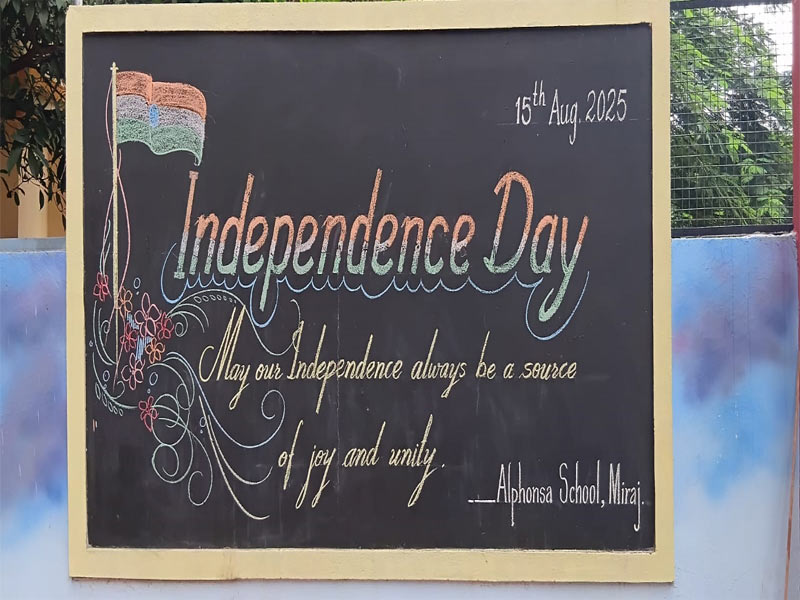 15th Aug. 2025
Independence Day
May our Independence always be a source
of joy and unity.
__Alphonsa School, Miraj.